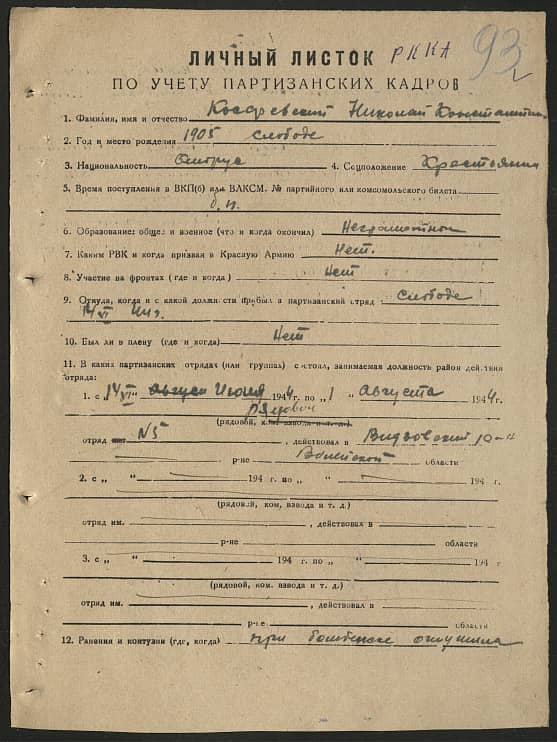 РККА
93
ЛИЧНЫЙ ЛИСТОК
ПО УЧЕТУ ПАРТИЗАНСКИХ КАДРОВ
1. Фамилия, имя и отчество Николай
2. Год и место рождения 1905 слободе
3. Национальность 4. Соцположение
5. Время поступления в ВКП(б) или ВЛКСМ. № партийного или комсомольского билета
б. п.
6. Образование: общее и военное (что и когда окончил)
7. Каким РВК и когда призван в Красную Армию Нет.
8. Участие на фронтах (где и когда) Нет
9. Откуда, когда и с какой должности прибыл в партизанский отряд слободе
14 VI
10. Был ли в плену (где и когда) Нет
11. В каких партизанских отрядах (или группах) состоял, занимаемая должность район действия
отряда:
1. с „14 VI“ Июня 1944 г. по „1 “ Августа 1944 г.
рядовой
(рядовой, ком. взвода и т. д.)
отряд №5 , действовал в Видзовский р-н
р-не области
2. с „ “ 194 г. по „ “ 194 г.
(рядовой, ком, взвода и т. д.)
отряд им. , действовал в
р-не области
3. с „ “ 194 г. по „ “ 194 г.
(рядовой, ком. взвода и т. д.)
отряд им. , действовал в
р-не области
12. Ранения и контузии (где, когда) при